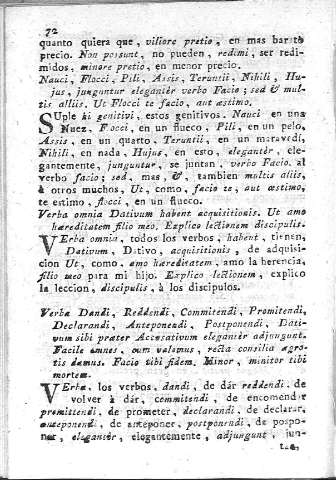 72
quanto quiera que, viliore pretio, en mas barato
precio. Non possunt, no pueden, redimi, ser redi-
midos, minore pretio, en menor precio.
Nauci, Flocci, Pili, Assis, Teruntii, Nihili, Hu-
jus, junguntur eleganter verbo Facio; sed & mul-
tis alliis. Ut Flocci te facio, aut æstimo.
SUple hi genitivi, estos genitivos. Nauci en una
Nuez, Flocci, en un flueco, Pili, en un pelo,
Assis, en un quarto, Teruntii, en un maravedí,
Nihili, en nada, Hujus, en esto, eleganter, ele-
gantemente, junguntur, se juntan, verbo Facio, al
verbo facio; sed, mas, &, tambien multis aliis,
à otros muchos, Ut, como, facio te, aut æstimo,
te estimo, flocci, en un flueco.
Verba omnia Dativum habent acquisitionis. Ut amo
hæreditatem filio meo. Explico lectionem discipulis.
VErba omnia, todos los verbos, habent, tienen,
Dativum, Dativo, acquisitionis, de adquisi-
cion Ut, como, amo hæreditatem, amo la herencia,
filio meo para mi hijo. Explico lectionem, explico
la leccion, discipulis, à los discipulos.
Verba Dandi, Reddendi, Commitendi, Promitendi,
Declarandi, Anteponendi, Postponendi, Dati-
vum sibi præter Accusativum eleganter adjungunt.
Facile omnes, cum valemus, recta consilia ægro-
tis damus. Facio tibi fidem. Minor, minitor tibi
mortem.
VErba, los verbos, dandi, de dár reddendi, de
volver à dár, commitendi, de encomendar
promittendi, de prometer, declarandi, de declarar,
anteponendi, de anteponer, postponendi, de pospo-
ner, eleganter, elegantemente, adjungunt, jun-